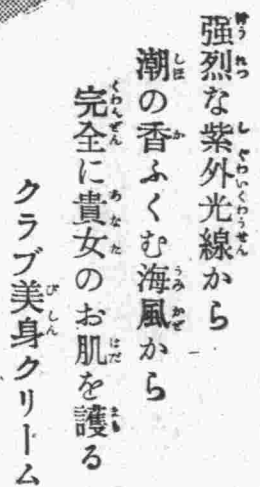 強烈な紫外光線から
潮の香ふくむ海風から
完全に貴女のお肌を護る
クラブ美身クリーム